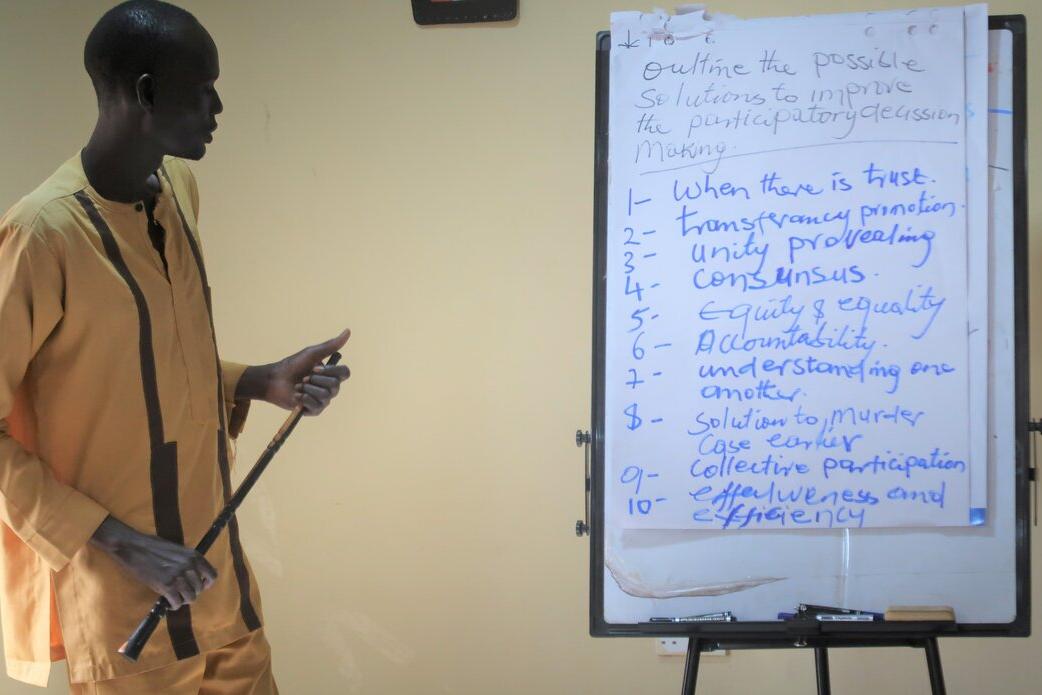 Oultine the possible
solutions to improve
the participatory decission
Making.
1- When there is trust.
2- transferancy promotion.
3- unity provealing
4- consunsus.
5- Equity & equality
6- Accountability.
7- understanding one
another.
8- Solution to, murder
Case earlier
9- collective participation
10- effeluveness and
efficiency